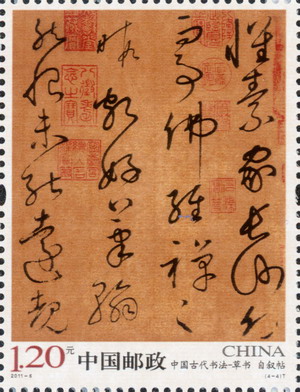 懷素家長沙幼而
事佛經禪之
暇頗好筆翰
然恨未能遠覩
八徵耄念之寶
CHINA
1.20元 中国邮政 中国古代书法—草书 自叙帖
2011-6 (4-4)T